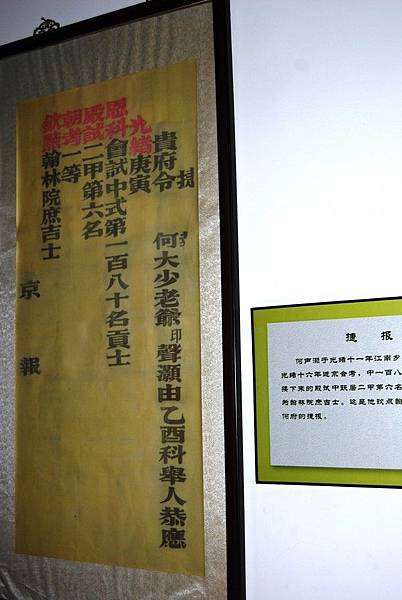 捷
貴府令何大少老爺印聲灝由乙酉科舉人恭應
光緒庚寅
恩科會試中式第一百八十名貢士
殿試二甲第六名
朝考一等
欽點翰林院庶吉士
京報
捷 报
何声灏于光绪十一年江南乡
光绪十六年进京会考，中一百八
接下来的殿试中跃居二甲第六名
为翰林院庶吉士。这是他钦点翰
何府的捷报。